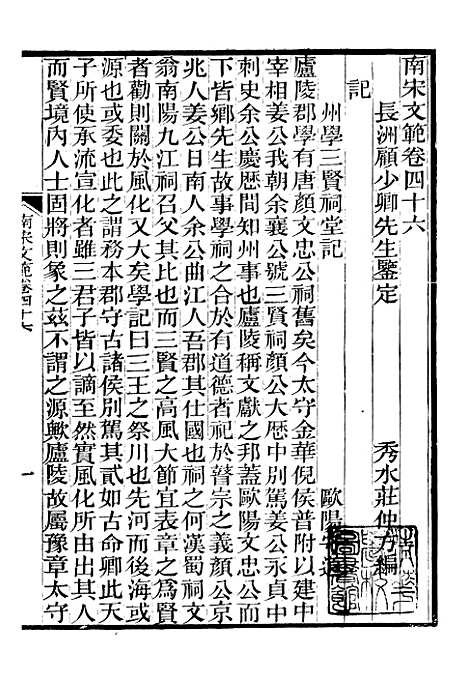 南宋文範卷四十六
長洲顧少卿先生鑒定　秀水莊仲方編
記
州學三賢祠堂記　歐陽
廬陵郡學有唐顏文忠公祠舊矣今太守金華倪侯普附以建中
宰相姜公我朝余襄公號三賢祠顏公大歷中別駕姜公永貞中
刺史余公慶歷間知州事也廬陵稱文獻之邦蓋歐陽文忠公而
下皆鄉先生故事學祠之合於有道德者祀於瞽宗之義顏公京
兆人姜公日南人余公曲江人吾郡其仕國也祠之何漢蜀祠文
翁南陽九江祠召父其比而三賢之高風大節宜表章之爲賢
者勸則關於風化又大矣學記曰三王之祭川也先河而後海或
源也或委也此之謂務本郡守古諸侯別駕其貳如古命卿此天
子所使承流宣化者雖三君子皆以謫至然實風化所由出其人
而賢境內人士固將則象之茲不謂之源歟廬陵故屬豫章太守
南宋文範卷四十六
一